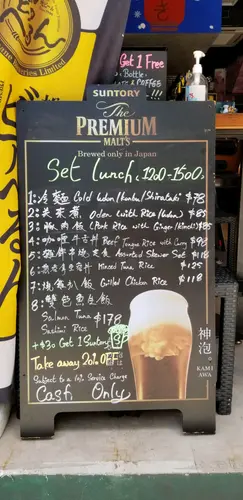 Get 1 Free
Bottle
& COFFEE
Limited
SUNTORY
The
PREMIUM
MALT'S
Brewed only in Japan
Set Lunch: 1200-1500
1: 冷麵 Cold Udon/Somba/Shirataki $78
2: Oden (with Rice/Udon) $85
3: 豚肉飯 (Pork Rice with Ginger/Kimchi) $85
4: 咖喱牛舌飯 Beef Tongue Rice with Curry $98
5: Assorted Skewer Set $118
6: Minced Tuna Rice $125
7: Grilled Chicken Rice $118
8: 雙色魚生飯
Salmon Tuna $178
Sashimi Rice
+$30 Get 1 Suntory
Take away 20% OFF
Subject to a 10% Service Charge
Cash Only
神泡。
KAMI
AWA